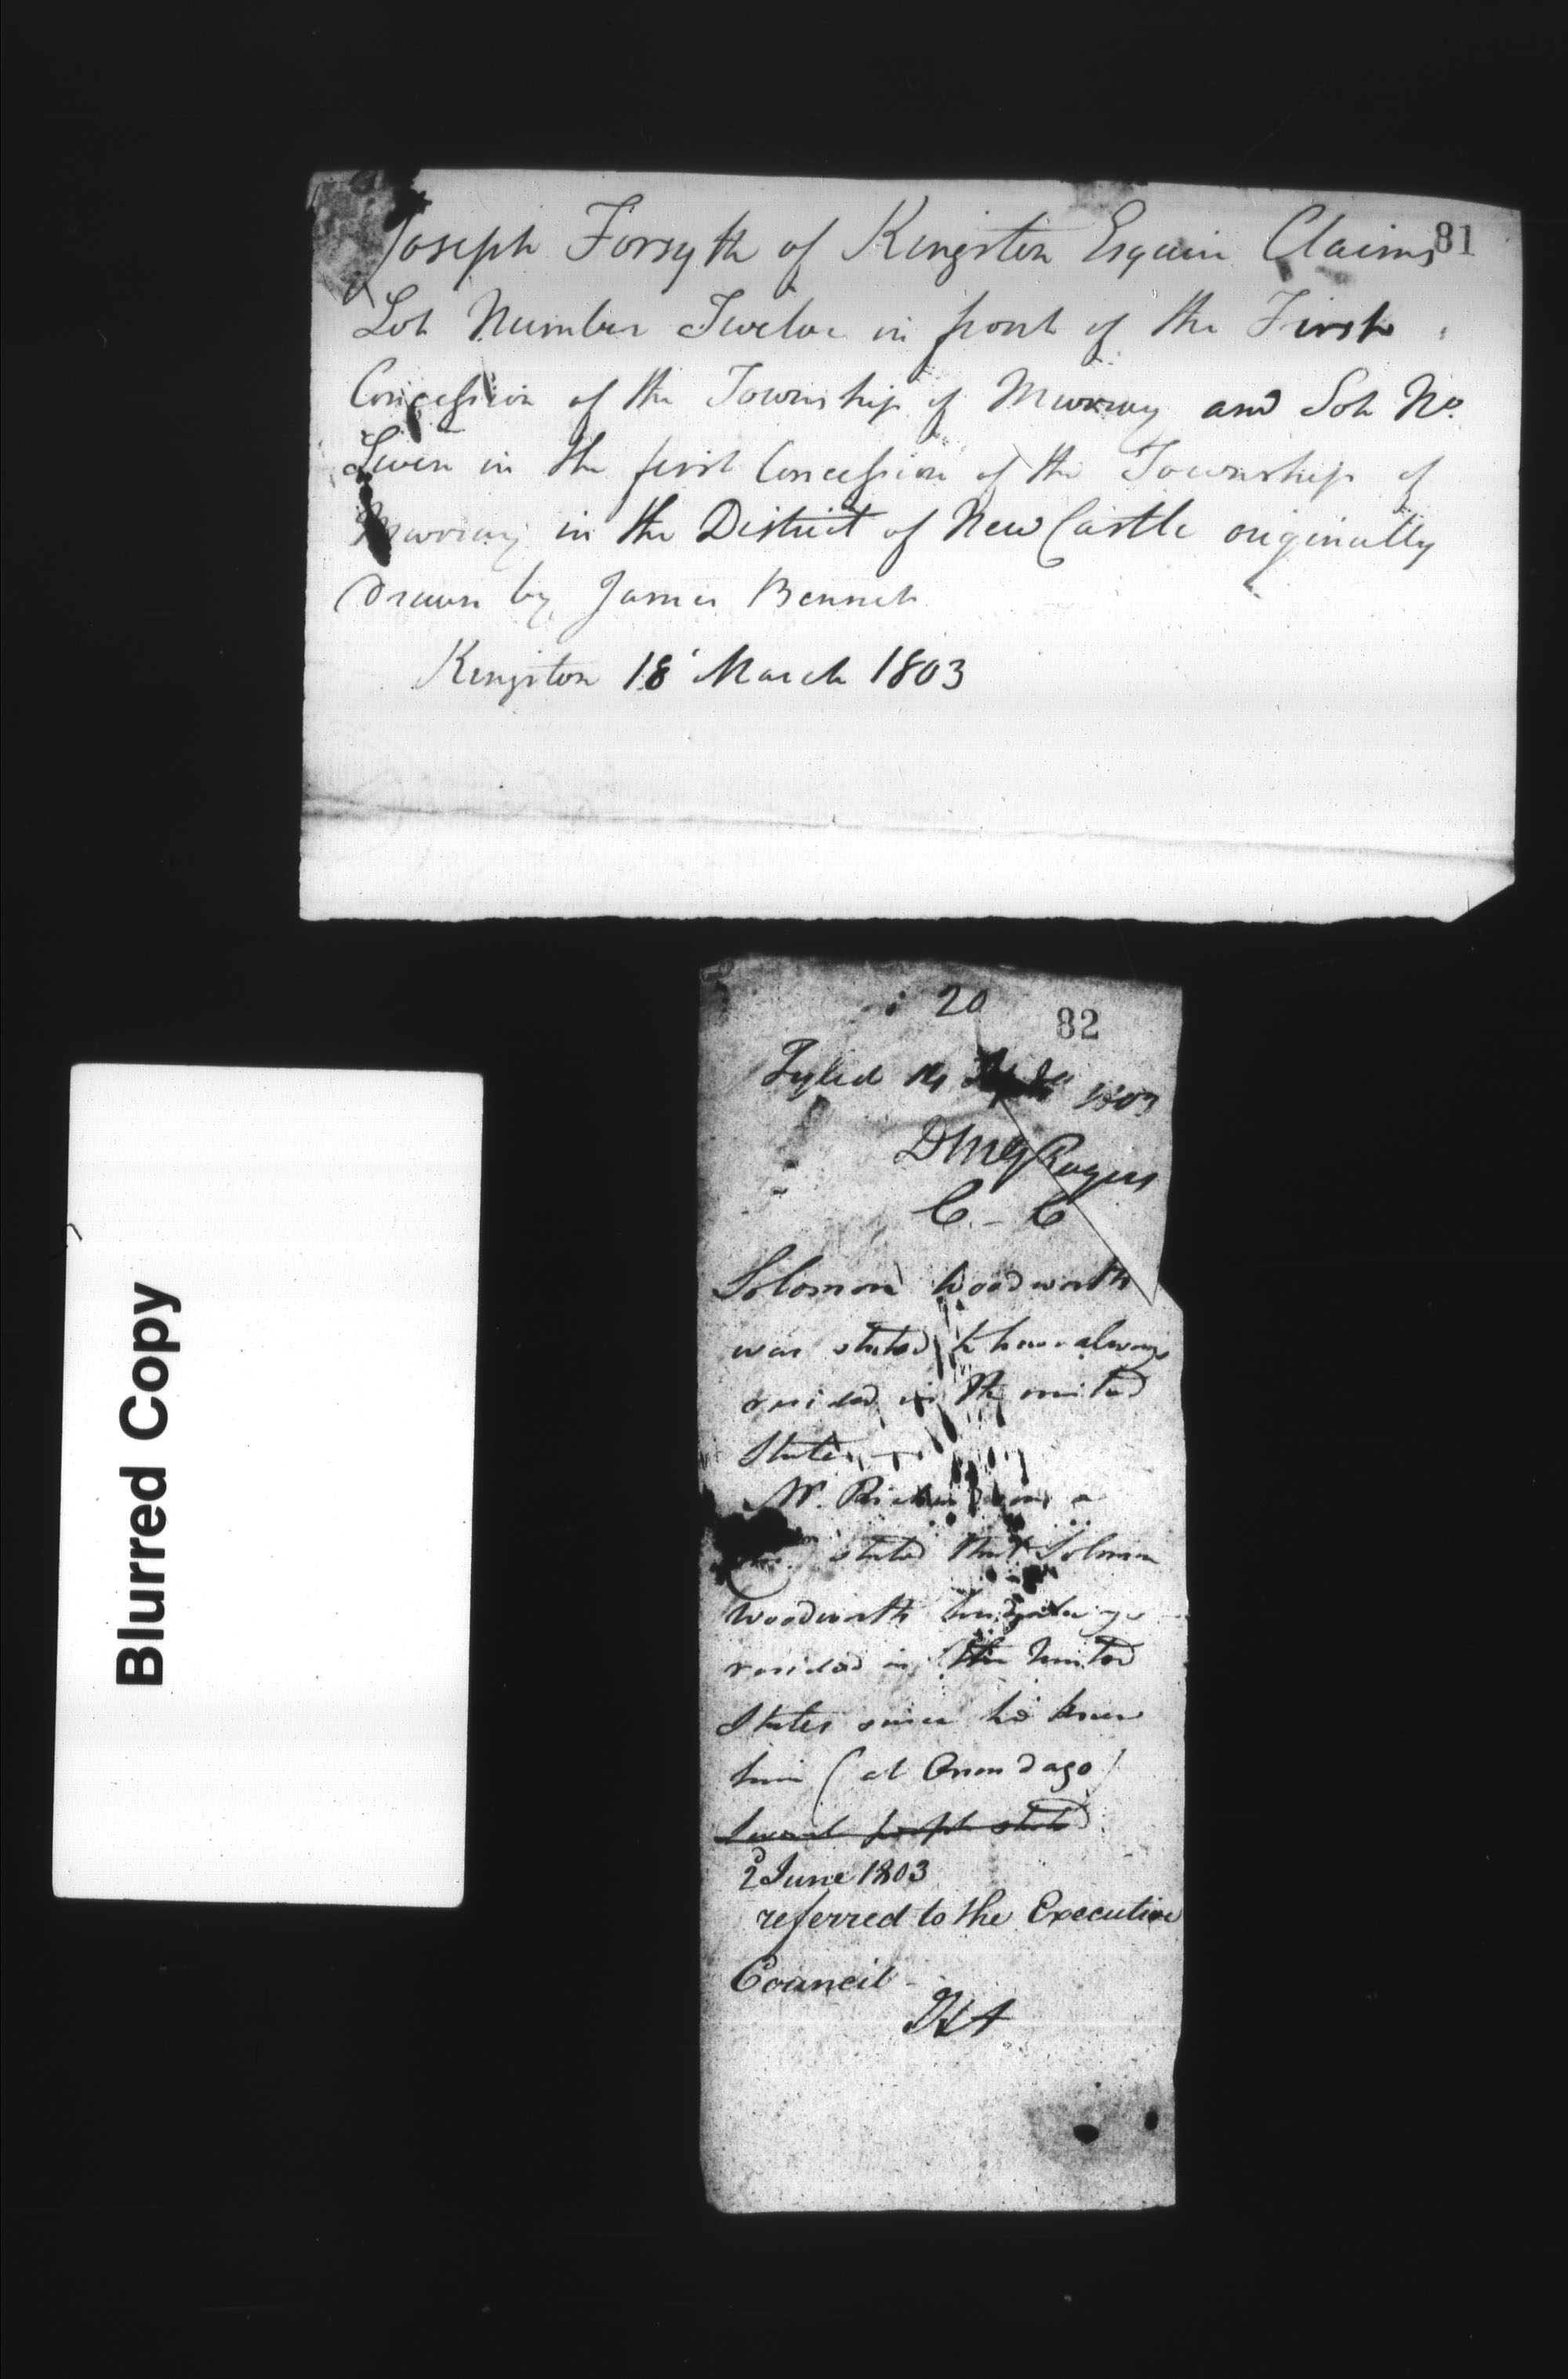 81
Joseph Forsyth of Kingston Esquire Claims
Lot Number Twelve in front of the First
Concession of the Township of Murray and Lot No.
Seven in the first Concession of the Township of
Murray in the District of New Castle originally
Drawn by James Bennet
Kingston 18 March 1803
20
82
Fyled 14 1803
DMG Rogers
C - C
Solomon Woodworth
was stated to have always
resided in the united
States
Mr. Richardson a
stated that Solomon
Woodworth had
resided in the United
States since he knew
him (at Onondago)
Several people stated
2d June 1803
referred to the Executive
Council -
Blurred Copy